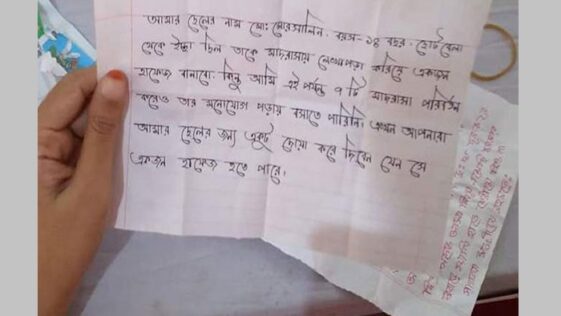 আমার ছেলের নাম মো: মোরসালিন। বয়স-১৪ বছর। ছোটবেলা
থেকে ইচ্ছা ছিল তাকে মাদরাসায় লেখাপড়া করিয়ে একজন
হাফেজ বানাবো। কিন্তু আমি এই পর্যন্ত ৭ টি মাদরাসা পরিবর্তন
করেও তার মনোযোগ পড়ায় বসাতে পারিনি। এখন আপনারা
আমার ছেলের জন্য একটু দোয়া করে দিবেন যেন সে
একজন হাফেজ হতে পারে।